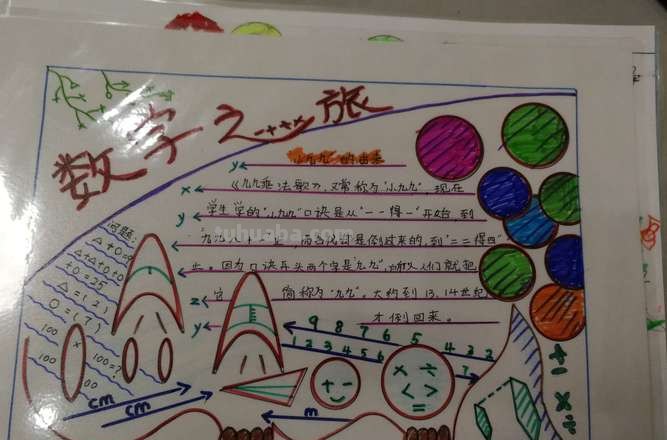 数字之旅
"小九九"的由来
《九九乘法歌》,又常称为"小九九",现在
学生学的"小九九"口诀是从"一一得一"开始,到
"九九八十一"止,而古代却是倒过来的,到"二二得四"
止。因为口诀开头两个字是"九九",所以人们就把
它 简称为"九九"。大约到13、14世纪
才倒回来。
tuhuaha.com
问题:
△+○=9
△+△+○+○
+○=25
△=(2)
○=(7)
100 x
100 100=?
100
y
x
y
z
y
9 8 7 6 5 4 3 2
1 2 3 4 5 6 7
cm
cm
m
+ -
× ÷
< >
=
+ -
× ÷